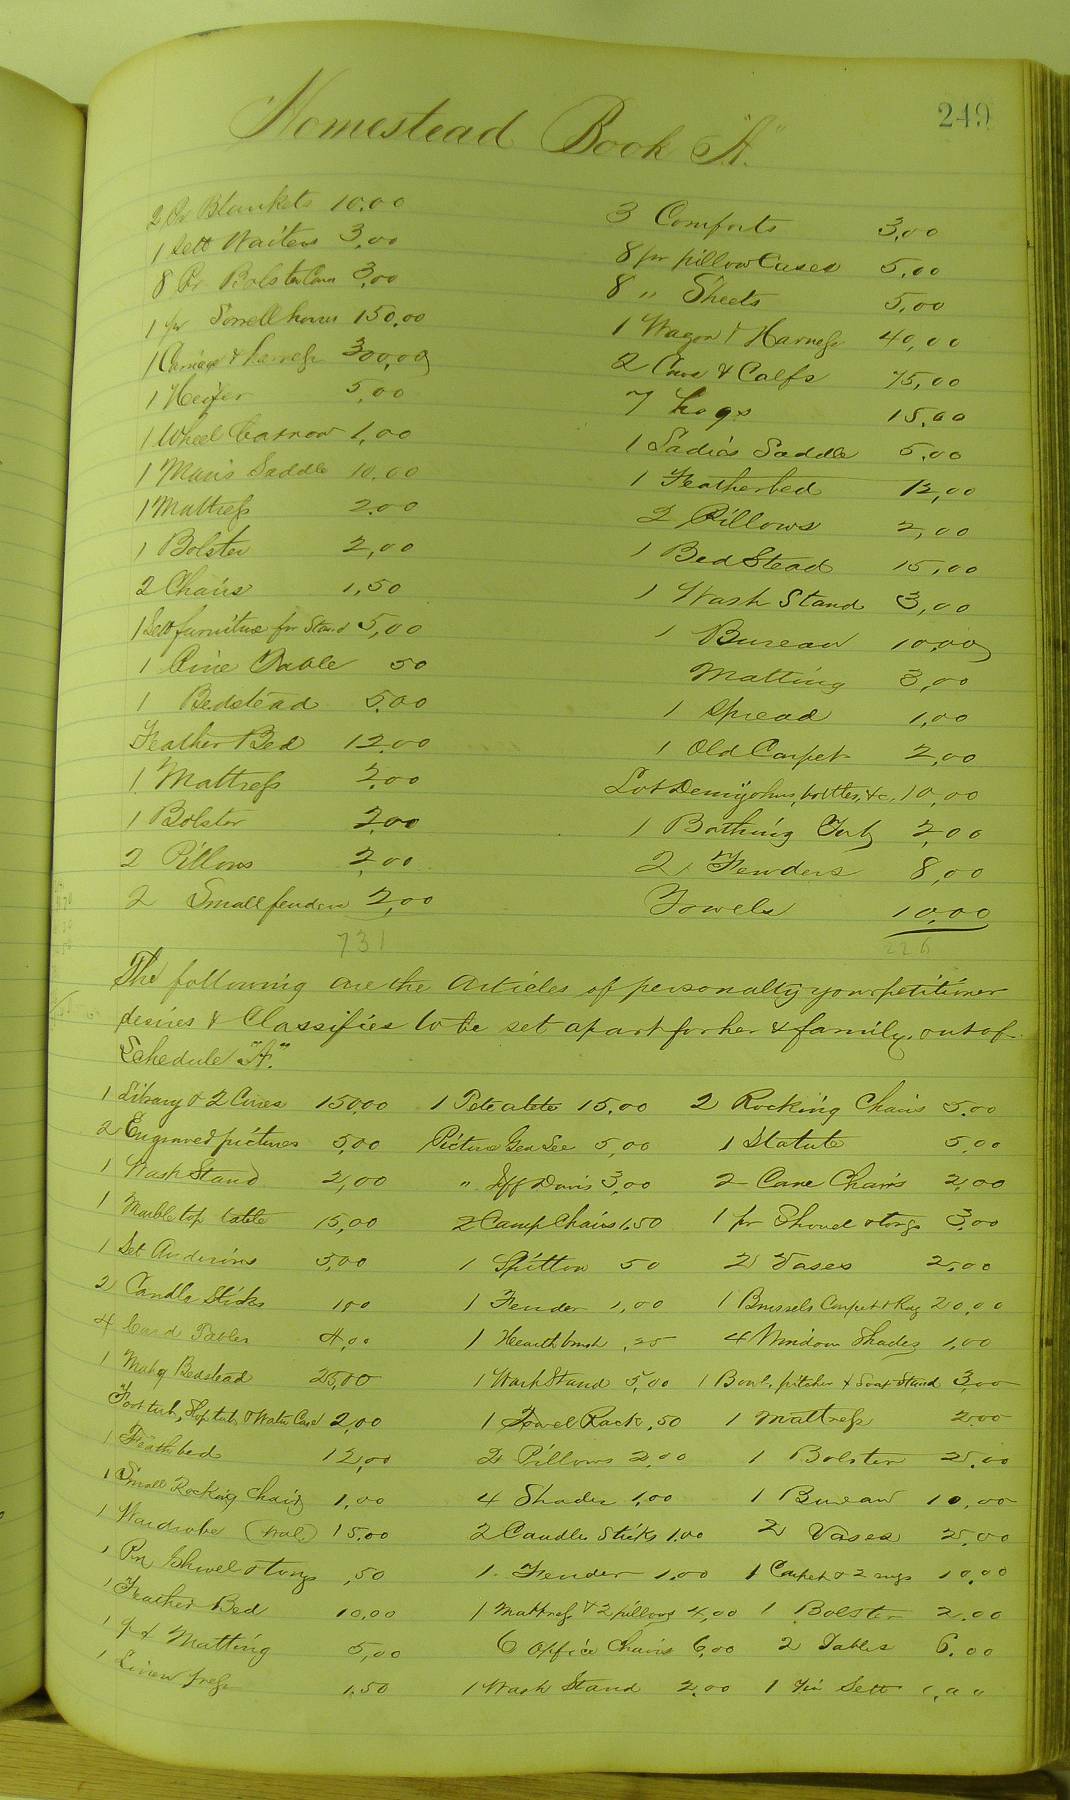 249
Homestead Book "A."
2 Pr Blankets 10.00 3 Comforts 3,00
1 Sett Waiters 3,00 8 pr pillow Cases 5,00
8 Pr Bolster Cases 3,00 8 " Sheets 5,00
1 pr Sorrell horses 150,00 1 Wagon & Harness 40,00
1 Carriage & harness 300,00 2 Cows & Calfs 75,00
1 Heifer 5,00 7 hogs 15,00
1 Wheel barrow 1,00 1 Ladies Saddle 5,00
1 Man's Saddle 10,00 1 Featherbed 12,00
1 Mattress 2.00 2 Pillows 2,00
1 Bolster 2,00 1 Bed Stead 15,00
2 Chairs 1,50 1 Wash Stand 3,00
1 Sett furniture for Stand 5,00 1 Bureau 10,00
1 Pine Table 50 Matting 3,00
1 Bedstead 5,00 1 Spread 1,00
Feather Bed 12,00 1 Old Carpet 2,00
1 Mattress 2,00 Lot Demijohns, bottles, &c, 10,00
1 Bolster 2,00 1 Bathing Tub 2,00
2 Pillows 2,00 2 Fenders 8,00
2 Small fenders 2,00 Towels 10,00
731 226
The following are the articles of personalty your petitioner
desires & Classifies to be set apart for her & family, out of
Schedule "A."
1 Library & 2 Cases 150,00 1 Tete a tete 15,00 2 Rocking Chairs 5.00
2 Engraved pictures 5,00 Picture Gen Lee 5,00 1 Statute 5,00
1 Wash Stand 2,00 " Jeff Davis 3,00 2 Cane Chairs 2,00
1 Marble top table 15,00 2 Camp Chairs 1,50 1 pr Shovel & tongs 3,00
1 Set Andirons 5,00 1 Spittoon 50 2 Vases 2,00
2 Candle Sticks 100 1 Fender 1,00 1 Brussels Carpet & Rug 20,00
4 Card Tables 4,00 1 Hearth brush ,25 4 Window Shades 1,00
1 Mahg Bedstead 25,00 1 Wash Stand 5,00 1 Bowl, pitcher & Soap Stand 3,00
Foot tub, Slop tub & Water Can 2,00 1 Towel Rack ,50 1 Mattress 2.00
1 Feather bed 12,00 2 Pillows 2,00 1 Bolster 2.00
1 Small Rocking Chair 1,00 4 Shades 1,00 1 Bureau 10,00
1 Wardrobe (Wal) 15.00 2 Candle Sticks 1.00 2 Vases 2.00
1 Pr Shovel & tongs ,50 1 Fender 1,00 1 Carpet & 2 rugs 10,00
1 Feather Bed 10.00 1 Mattress & 2 pillows 4,00 1 Bolster 2.00
1 Matting 5,00 6 Office Chairs 6,00 2 Tables 6.00
1 Linen press 1,50 1 Wash Stand 2.00 1 Tin Sett 1,00